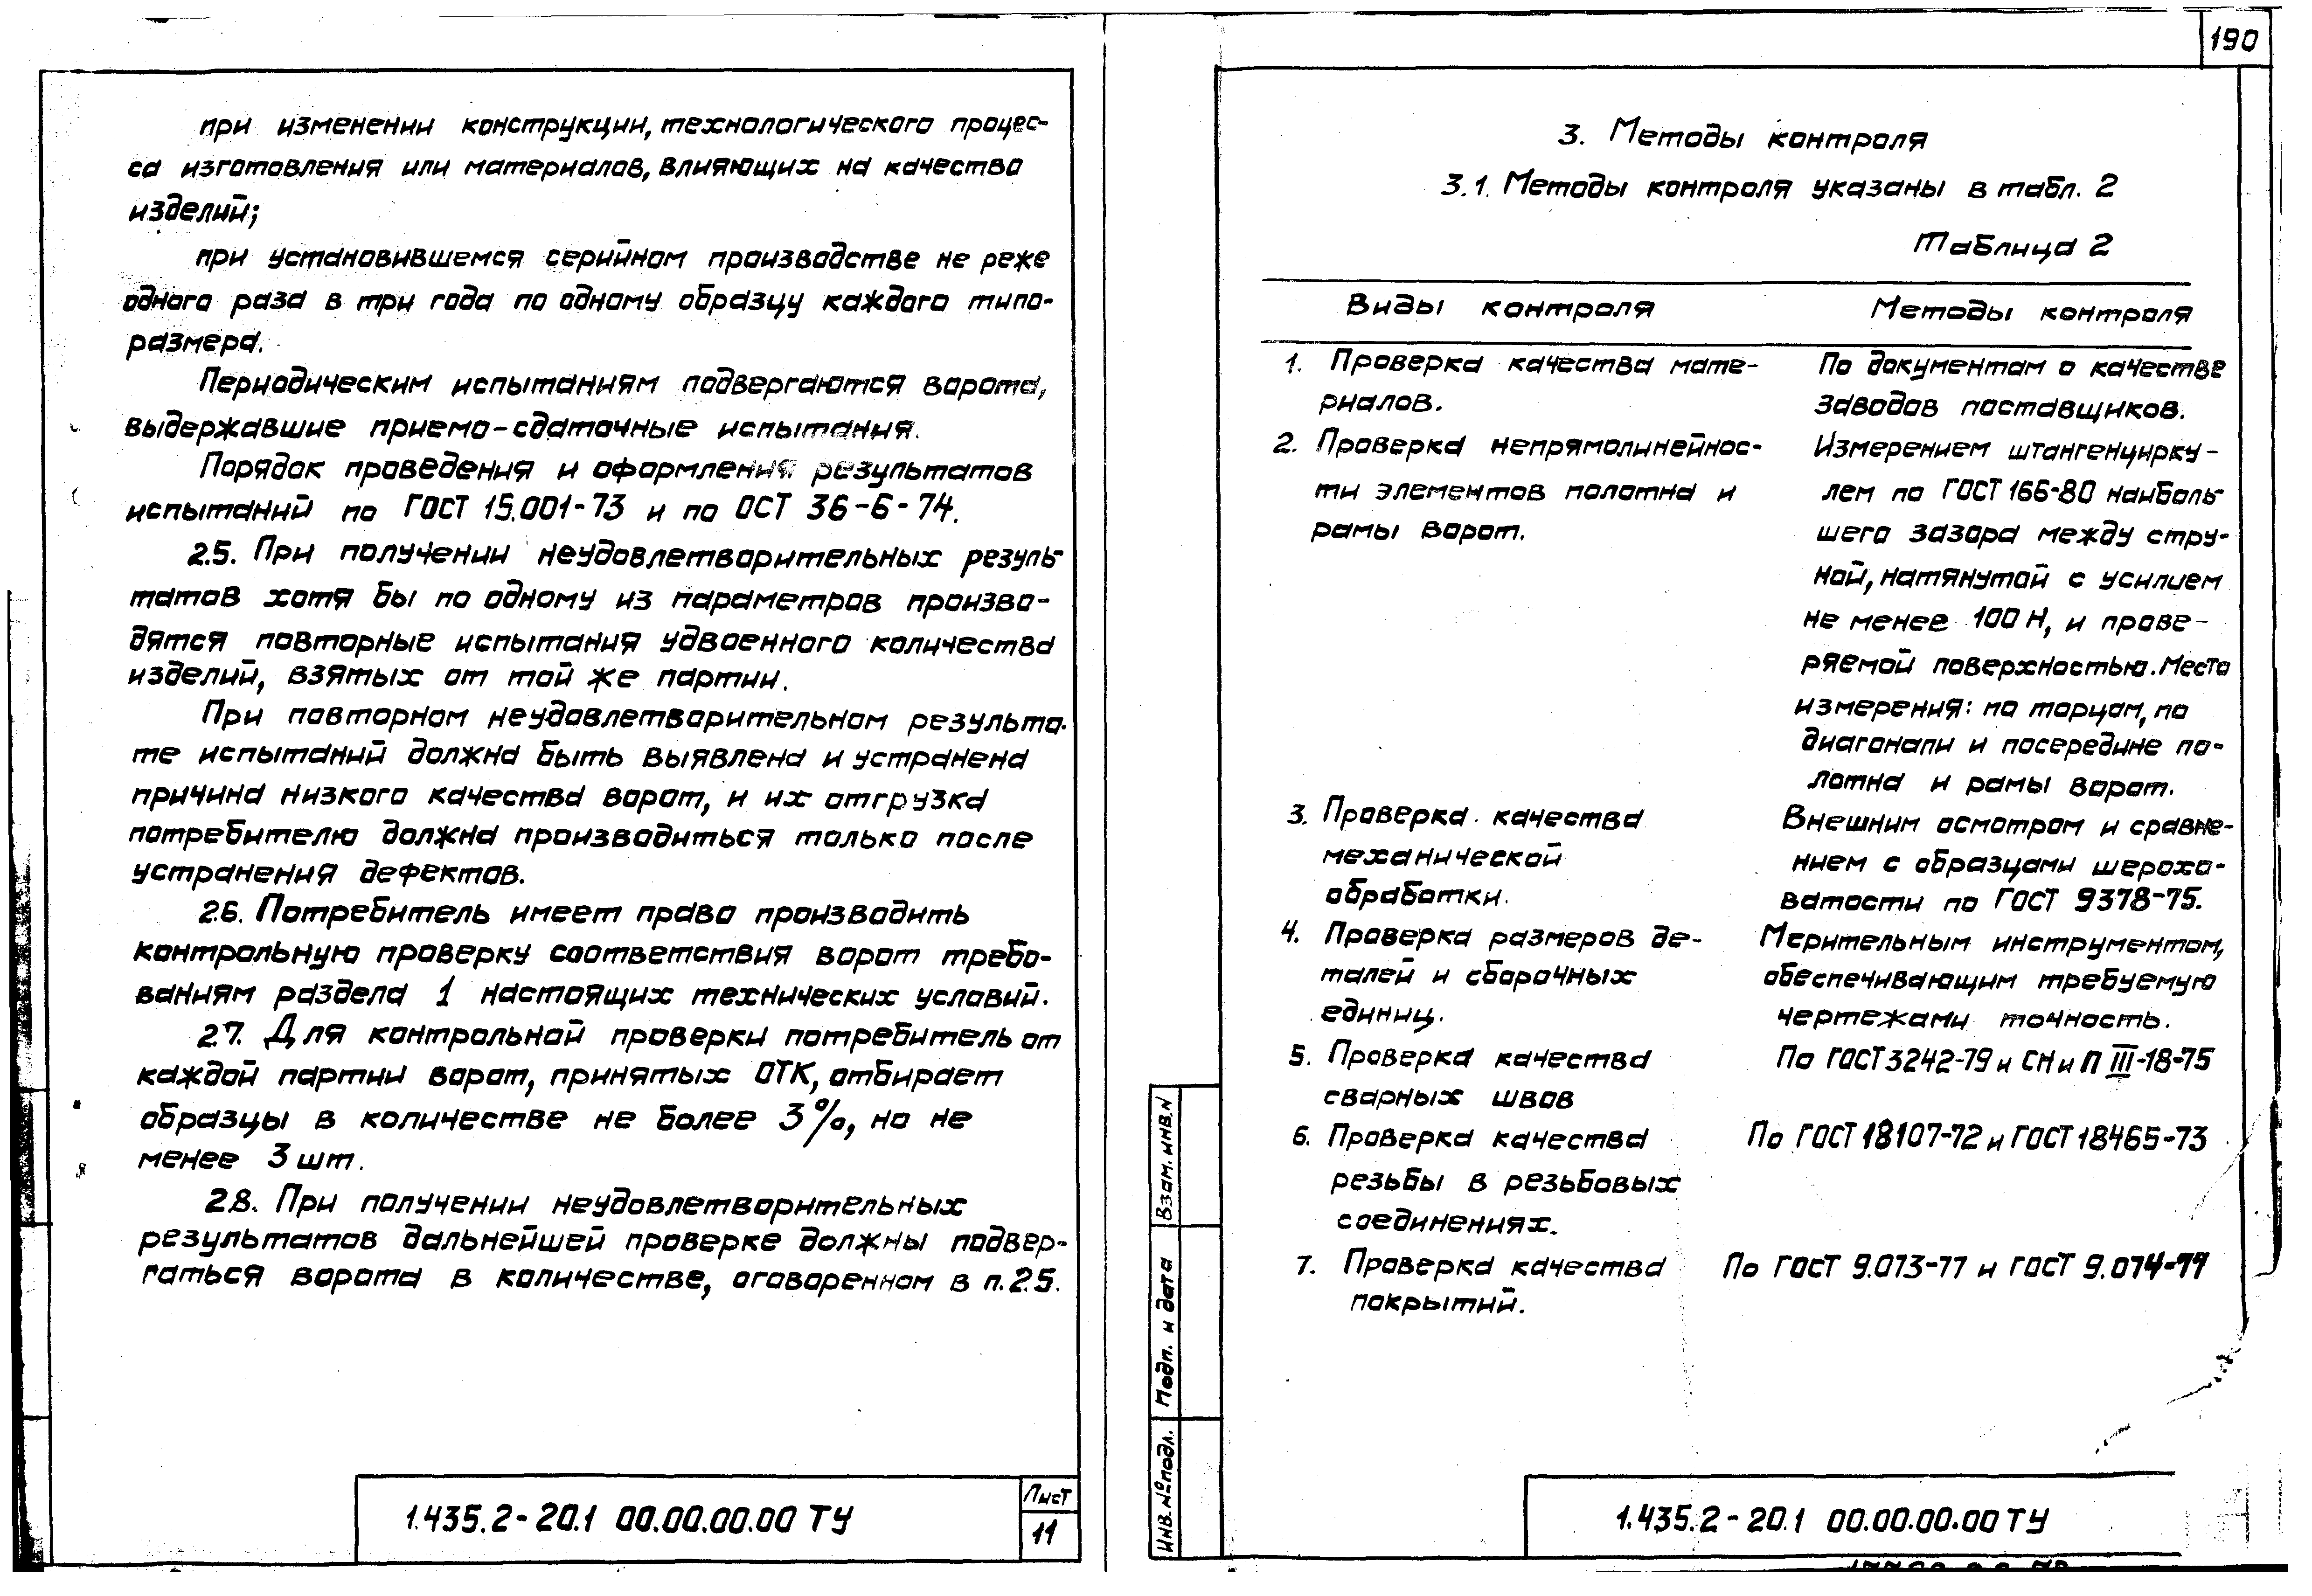 при изменении конструкции, технологического процес-
са изготовления или материалов, влияющих на качество
изделий;
при установившемся серийном производстве не реже
одного раза в три года по одному образцу каждого типо-
размера.
Периодическим испытаниям подвергаются ворота,
выдержавшие приемо-сдаточные испытания.
Порядок проведения и оформления результатов
испытаний по ГОСТ 15.001-73 и по ОСТ 36-6-74.
2.5. При получении неудовлетворительных резуль-
татов хотя бы по одному из параметров произво-
дятся повторные испытания удвоенного количества
изделий, взятых от той же партии.
При повторном неудовлетворительном результа-
те испытаний должна быть выявлена и устранена
причина низкого качества ворот, и их отгрузка
потребителю должна производиться только после
устранения дефектов.
2.6. Потребитель имеет право производить
контрольную проверку соответствия ворот требо-
ваниям раздела 1 настоящих технических условий.
2.7. Для контрольной проверки потребитель от
каждой партии ворот, принятых ОТК, отбирает
образцы в количестве не более 3%, но не
менее 3 шт.
2.8. При получении неудовлетворительных
результатов дальнейшей проверке должны подвер-
гаться ворота в количестве, оговоренном в п. 2.5.
1.435.2-20.1 00.00.00.00 ТУ
Лист
11
190
3. Методы контроля
3.1. Методы контроля указаны в табл. 2
Таблица 2
Виды контроля Методы контроля
1. Проверка качества мате-
риалов.
По документам о качестве
заводов поставщиков.
2. Проверка непрямолинейнос-
ти элементов полотна и
рамы ворот.
Измерением штангенцирку-
лем по ГОСТ 166-80 наиболь-
шего зазора между стру-
ной, натянутой с усилием
не менее 100 Н, и прове-
ряемой поверхностью. Место
измерения: по торцам, по
диагонали и посередине по-
лотна и рамы ворот.
3. Проверка качества
механической
обработки.
Внешним осмотром и сравне-
нием с образцами шерохо-
ватости по ГОСТ 9378-75.
4. Проверка размеров де-
талей и сборочных
единиц.
Мерительным инструментом,
обеспечивающим требуемую
чертежами точность.
5. Проверка качества
сварных швов
По ГОСТ 3242-79 и СН и П III-18-75
6. Проверка качества
резьбы в резьбовых
соединениях.
По ГОСТ 18107-72 и ГОСТ 18465-73
7. Проверка качества
покрытий.
По ГОСТ 9.073-77 и ГОСТ 9.074-77
Взам. инв. N
Подп. и дата
Инв. № подл.
1.435.2-20.1 00.00.00.00 ТУ